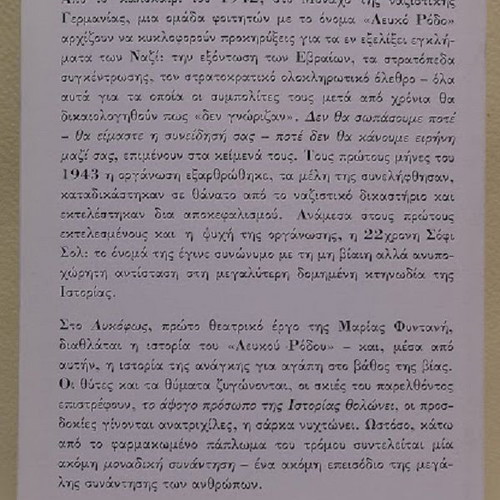 Από το καλοκαίρι του 1942, στο Μόναχο της ναζιστικής
Γερμανίας, μια ομάδα φοιτητών με το όνομα «Λευκό Ρόδο»
αρχίζουν να κυκλοφορούν προκηρύξεις για τα εν εξελίξει εγκλή-
ματα των Ναζί: την εξόντωση των Εβραίων, τα στρατόπεδα
συγκέντρωσης, τον στρατοκρατικό ολοκληρωτικό όλεθρο – όλα
αυτά για τα οποία οι συμπολίτες τους μετά από χρόνια θα
δικαιολογηθούν πως «δεν γνώριζαν». Δεν θα σωπάσουμε ποτέ
– θα είμαστε η συνείδησή σας – ποτέ δεν θα κάνουμε ειρήνη
μαζί σας, επιμένουν στα κείμενά τους. Τους πρώτους μήνες του
1943 η οργάνωση εξαρθρώθηκε, τα μέλη της συνελήφθησαν,
καταδικάστηκαν σε θάνατο από το ναζιστικό δικαστήριο και
εκτελέστηκαν δια αποκεφαλισμού. Ανάμεσα στους πρώτους
εκτελεσμένους και η ψυχή της οργάνωσης, η 22χρονη Σόφι
Σολ: το όνομά της έγινε συνώνυμο με τη μη βίαιη αλλά ανυπο-
χώρητη αντίσταση στη μεγαλύτερη δομημένη κτηνωδία της
Ιστορίας.
Στο Λυκόφως, πρώτο θεατρικό έργο της Μαρίας Φυντανή,
διαθλάται η ιστορία του «Λευκού Ρόδου» – και, μέσα από
αυτήν, η ιστορία της ανάγκης για αγάπη στο βάθος της βίας.
Οι θύτες και τα θύματα ζυγώνονται, οι σκιές του παρελθόντος
επιστρέφουν, το άψογο πρόσωπο της Ιστορίας θολώνει, οι προσ-
δοκίες γίνονται ανατριχίλες, η σάρκα νυχτώνει. Ωστόσο, κάτω
από το φαρμακωμένο πάπλωμα του τρόμου συντελείται μία
ακόμη μοναδική συνάντηση – ένα ακόμη επεισόδιο της μεγά-
λης συνάντησης των ανθρώπων.